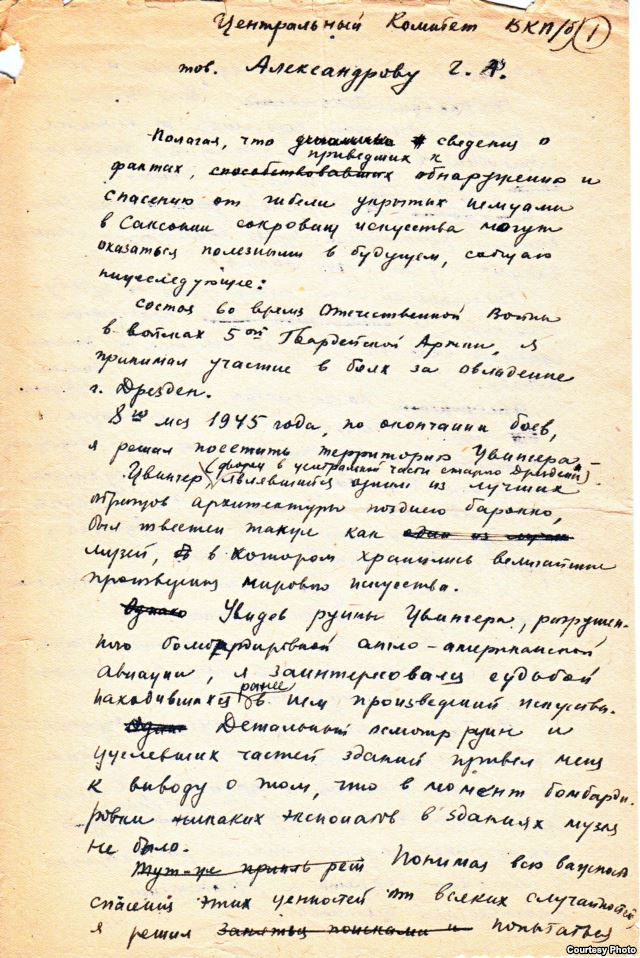 Центральный Комитет ВКП/б/ 1
тов. Александрову Г. А.
Полагая, что сведения о
приведших к
фактах, способствовавших обнаружению и
спасению от гибели укрытых немцами
в Саксонии сокровищ искусства могут
оказаться полезными в будущем, сообщаю
нижеследующее:
Состоя во время Отечественной Войны
в войсках 5ой Гвардейской Армии, я
принимал участие в боях за овладение
г. Дрезден.
8го мая 1945 года, по окончании боев,
я решил посетить территорию Цвингера –
(дворец в центральной части старого Дрездена)
Цвингер, являвшийся одним из лучших
образцов архитектуры позднего барокко,
был известен также как один из лучших
музей, в котором хранились величайшие
произведения мирового искусства.
Однако Увидев руины Цвингера, разрушен-
ного бомбардировкой англо-американской
авиации, я заинтересовался судьбой
ранее
находившихся в нем произведений искусства.
Один Детальный осмотр руин и
уцелевших частей зданий привел меня
к выводу о том, что в момент бомбарди-
ровки никаких экспонатов в зданиях музея
не было.
Тут-же принял реш Понимая всю важность
спасения этих ценностей от всяких случайностей,
я решил заняться поисками и попытаться
Courtesy Photo